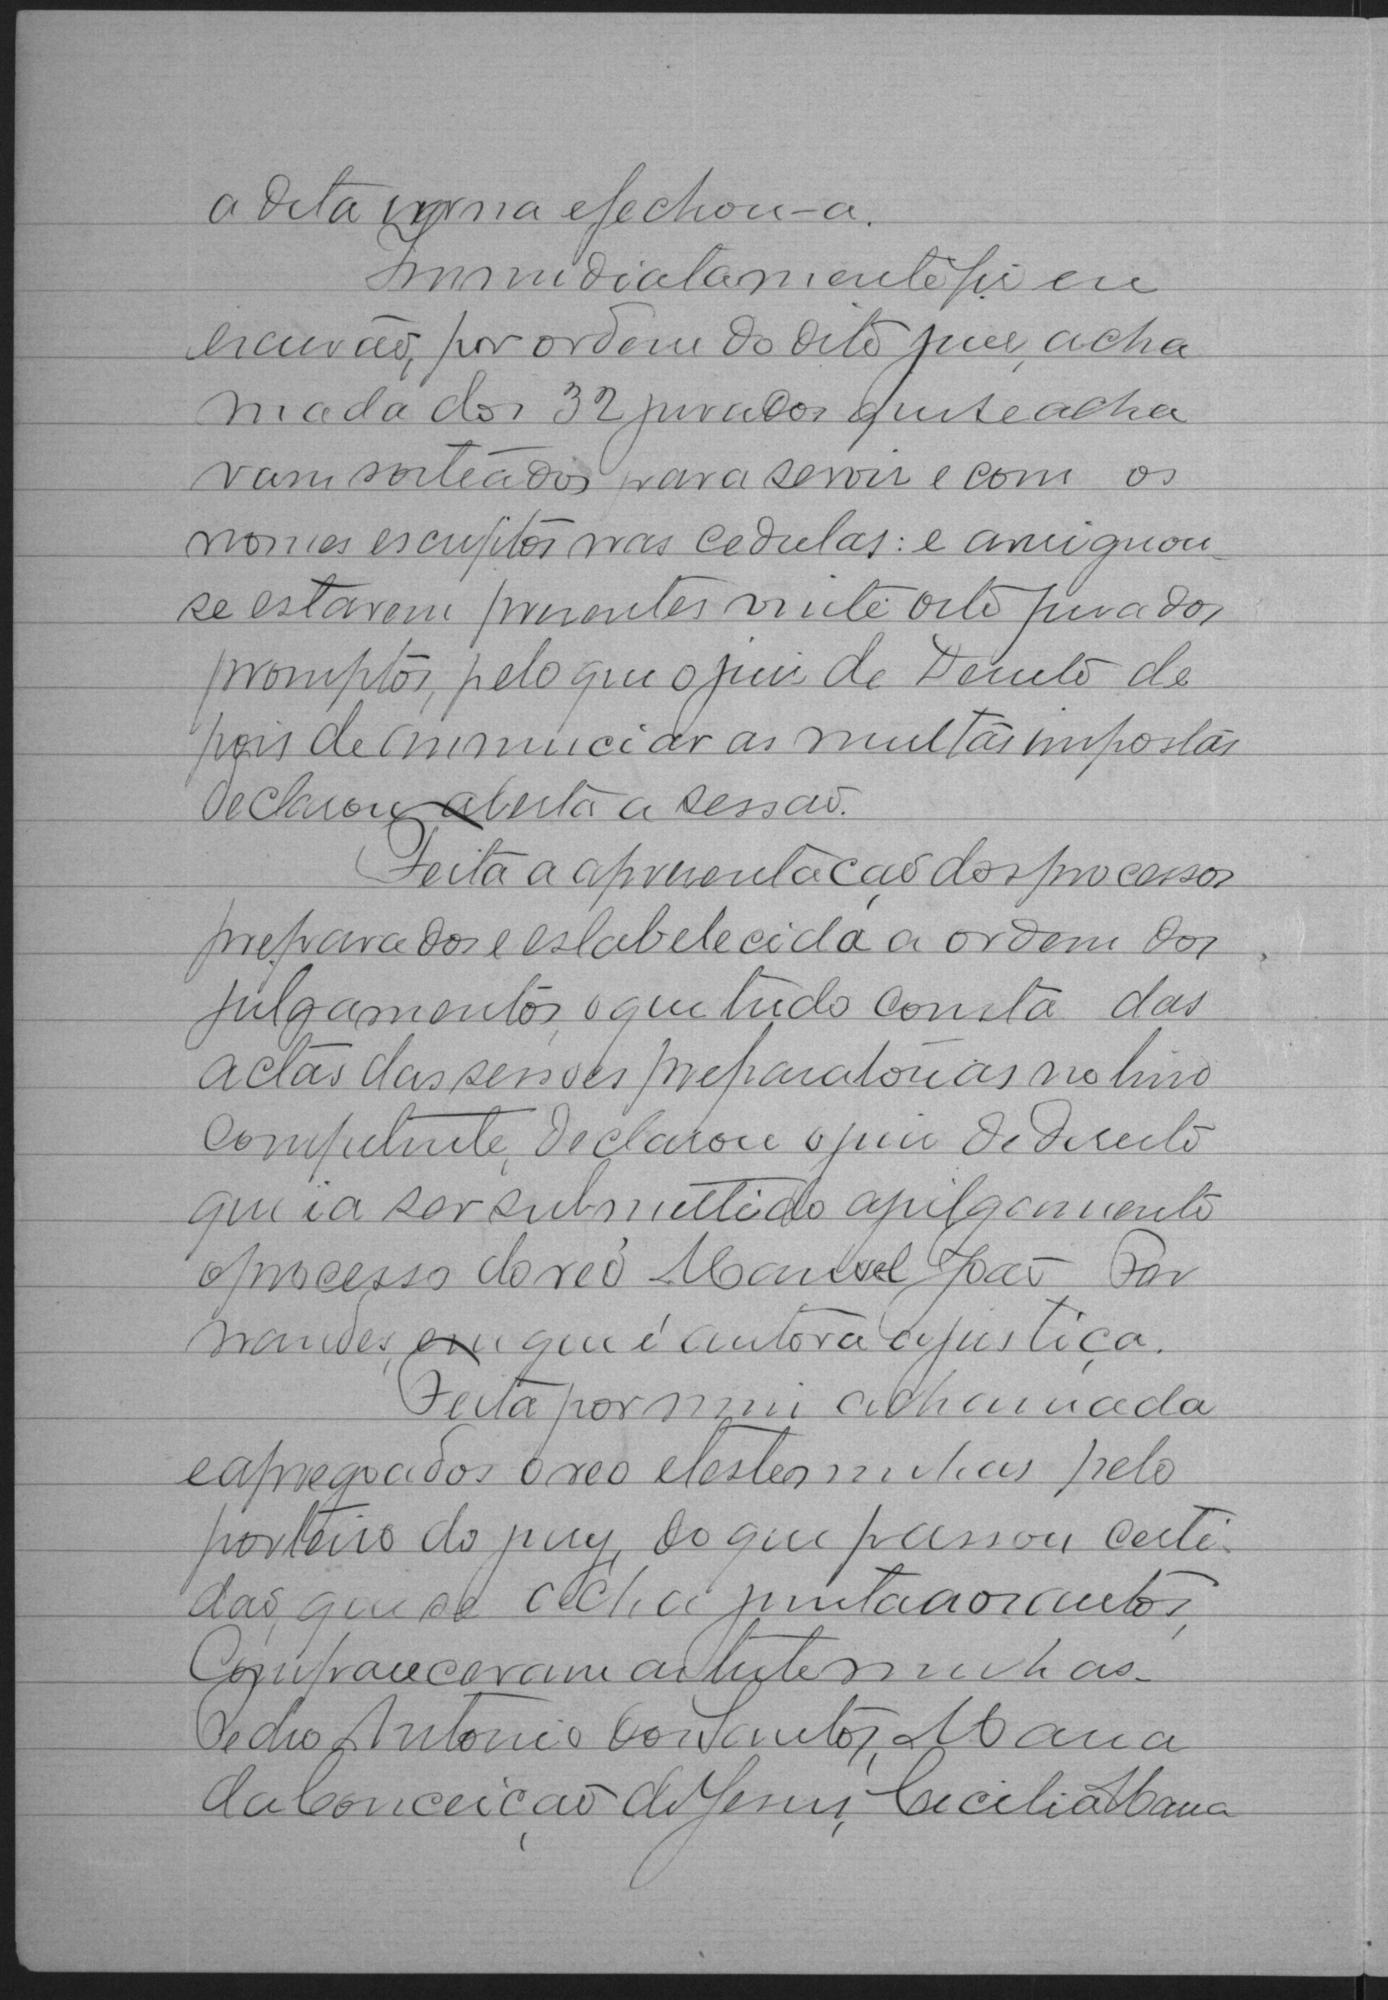 a dita urna e fechou-a.
Immidiatamente fiz eu
escrivão, por ordem do dito juiz, a cha
mada dos 32 jurados que se acha
vam sorteados para servir e com os
nomes escriptos nas cedulas: e averiguou-
se estarem presentes vinte oito jurados
promptos, pelo que o juiz de Direito de
pois de annunciar as multas impostas
declarou aberta a sessão.
Feita a apresentação dos processos
preparados e estabelecida a ordem dos
julgamentos, o que tudo consta das
actas das sessões preparatorias no livro
competente, declarou o juiz de direito
que ia ser submettido a julgamento
o processo do réo Manoel João Fer
nandes, em que é autora a justiça.
Feita por mim a chamada
e apregoados o reo e testemunhas pelo
porteiro do jury, do que passou certi-
dão, que se acha junta aos autos,
Compareceram as testemunhas-
Pedro Antonio dos Santos, Maria
da Conceição de Jesus, Cecilia Maria